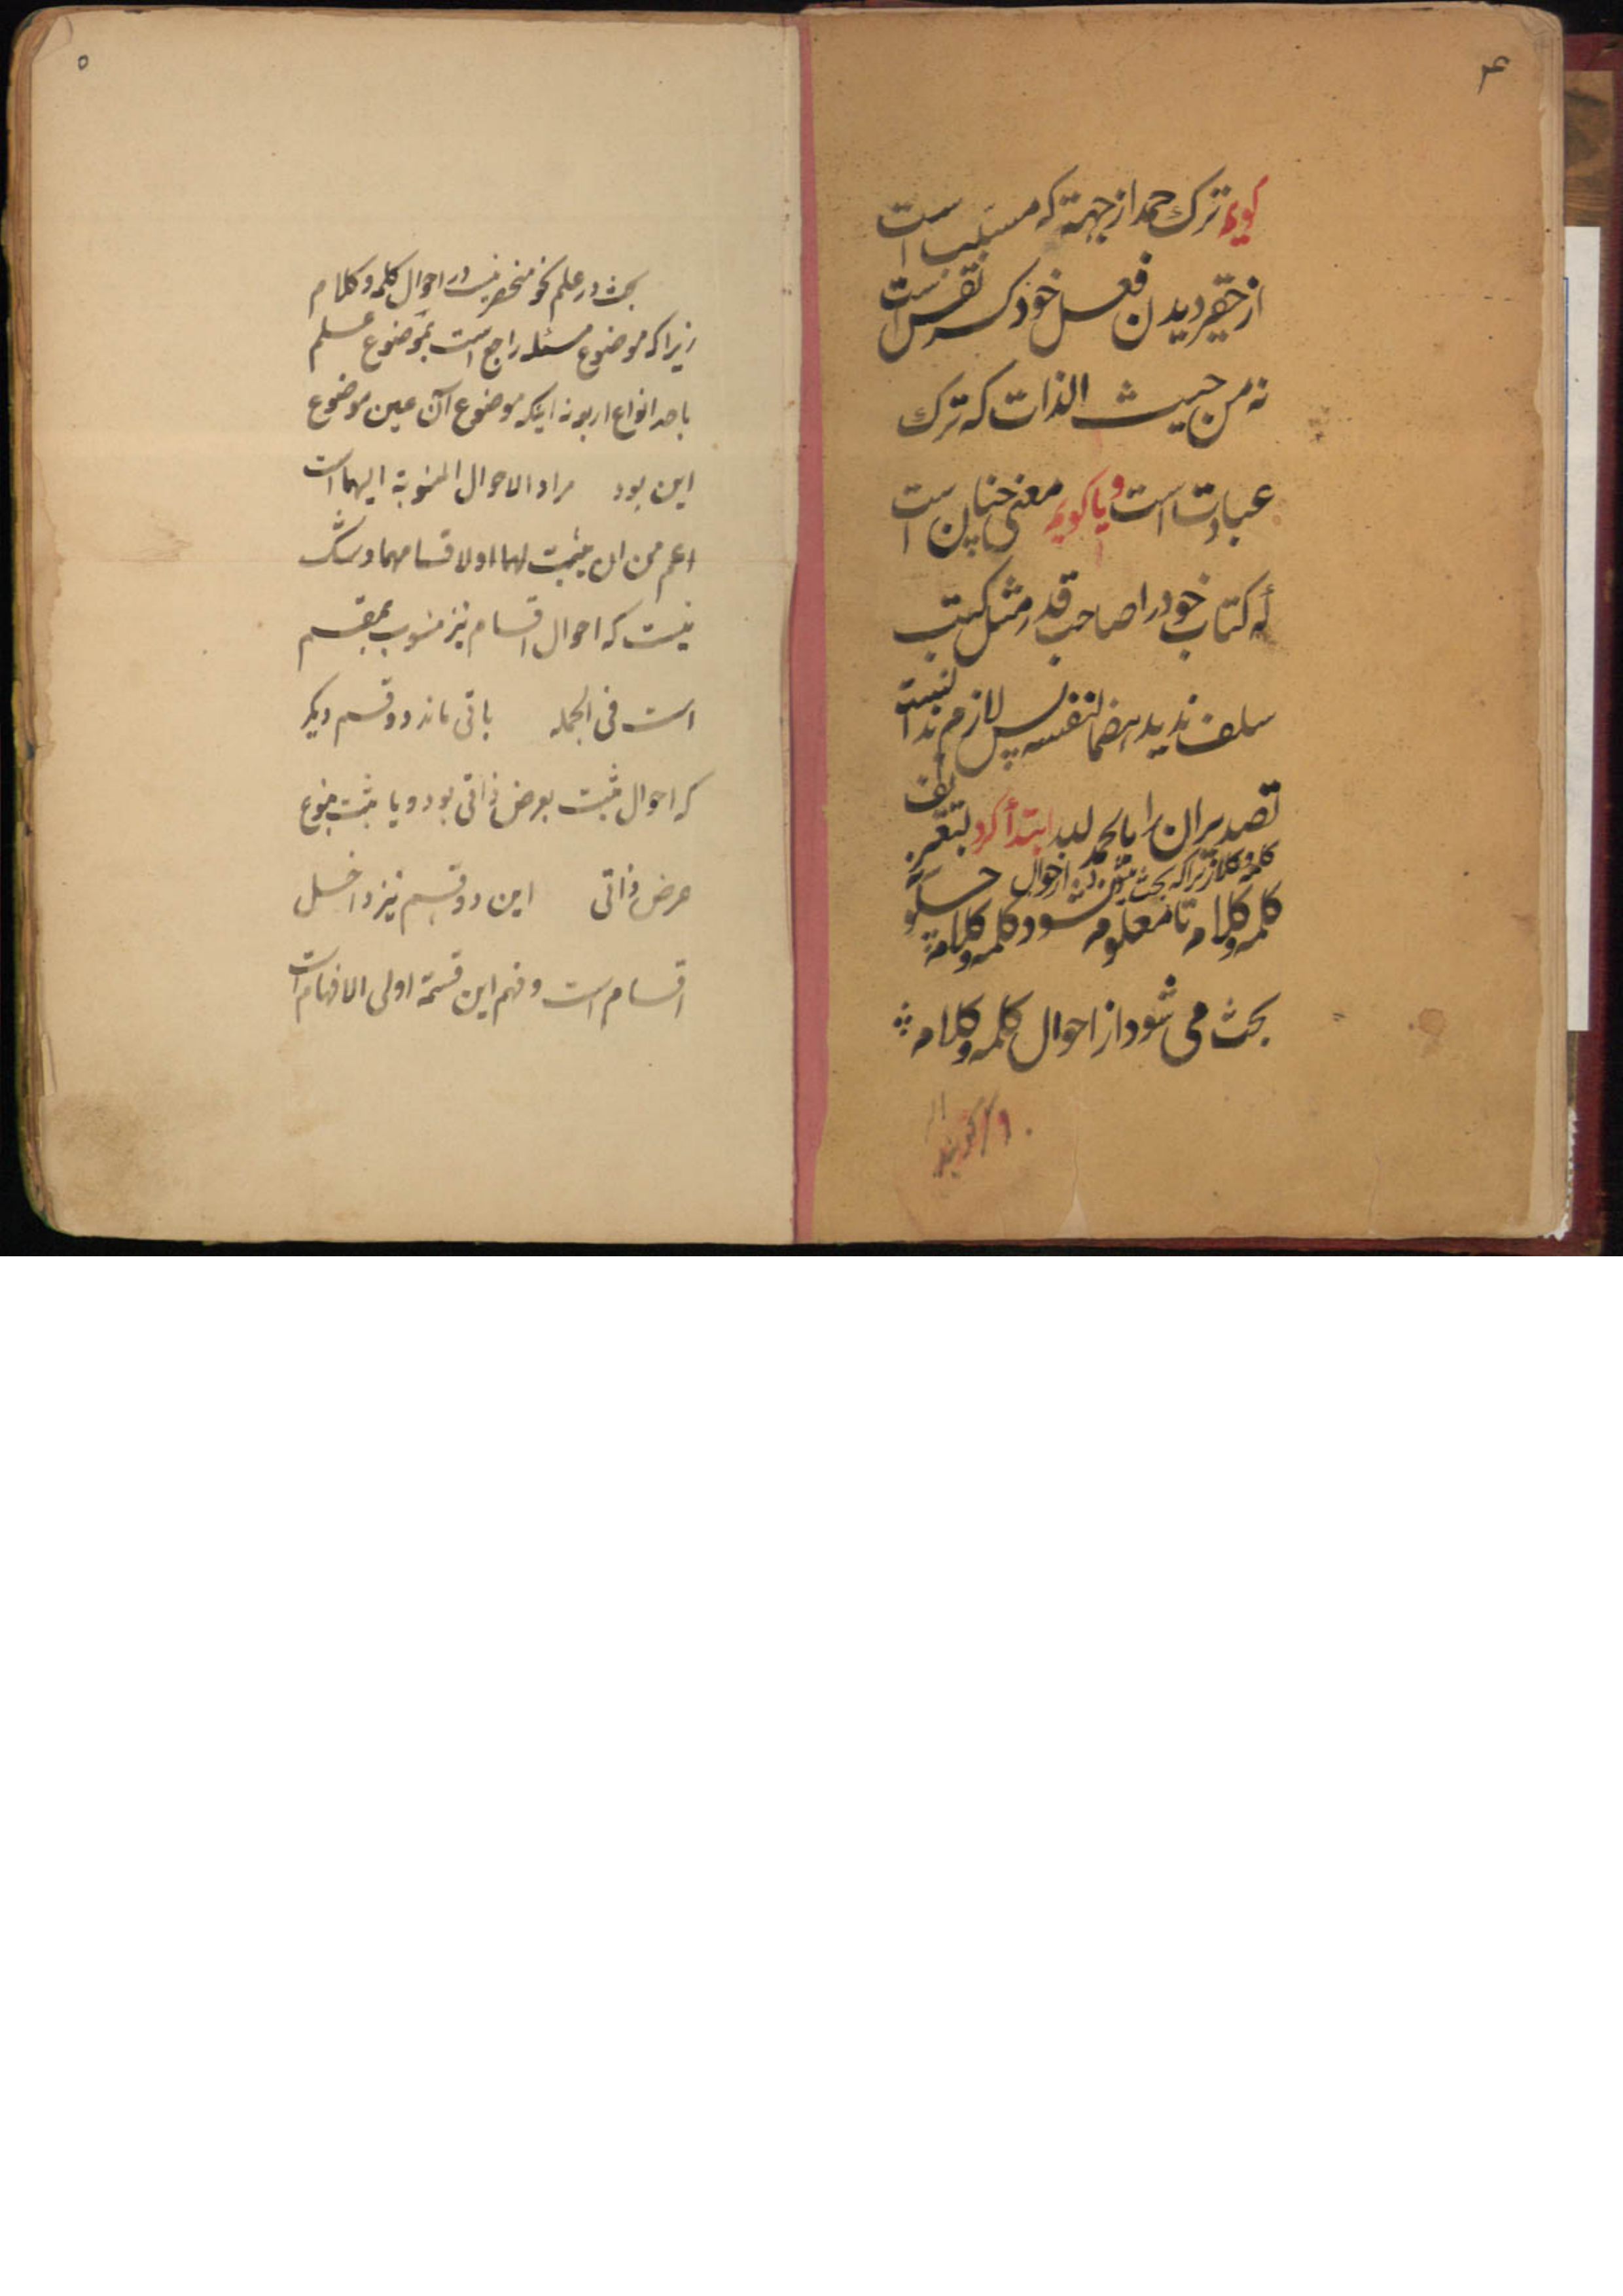 ۴
گویم ترک حمد از جهة که مسبب است
از حقیر دیدن فعل خود کسر نفس است
نه من حیث الذات که ترک
عبادت است و یا گویم معنی چنان است
که کتاب خود را صاحب قدر مثل کتب
سلف ندید هضما لنفسه پس لازم ندانست
تصدیر آن را بالحمد لله ابتدأ کرد بتعریف
کلمه و کلام زیرا که بحث میشود درین از احوال
کلمه و کلام تا معلوم نشود کلمه و کلام چگونه
بحث می شود از احوال کلمه و کلام
۵
بحث در علم نحو منحصر نیست در احوال کلمه و کلام
زیرا که موضوع مسئله راجع است بموضوع علم
باحد انواع اربعه نه اینکه موضوع آن عین موضوع
این بود مراد الاحوال المنسوبة الیهما است
اعم من ان یثبت لهما او لاقسامهما و شک
نیست که احوال اقسام نیز منسوب بمقسم
است فی الجمله باقی ماند دو قسم دیگر
که احوال مثبت بعرض ذاتی بود و یا مثبت بنوع
عرض ذاتی این دو قسم نیز داخل
اقسام است و فهم این قسمة اولی الافهام است